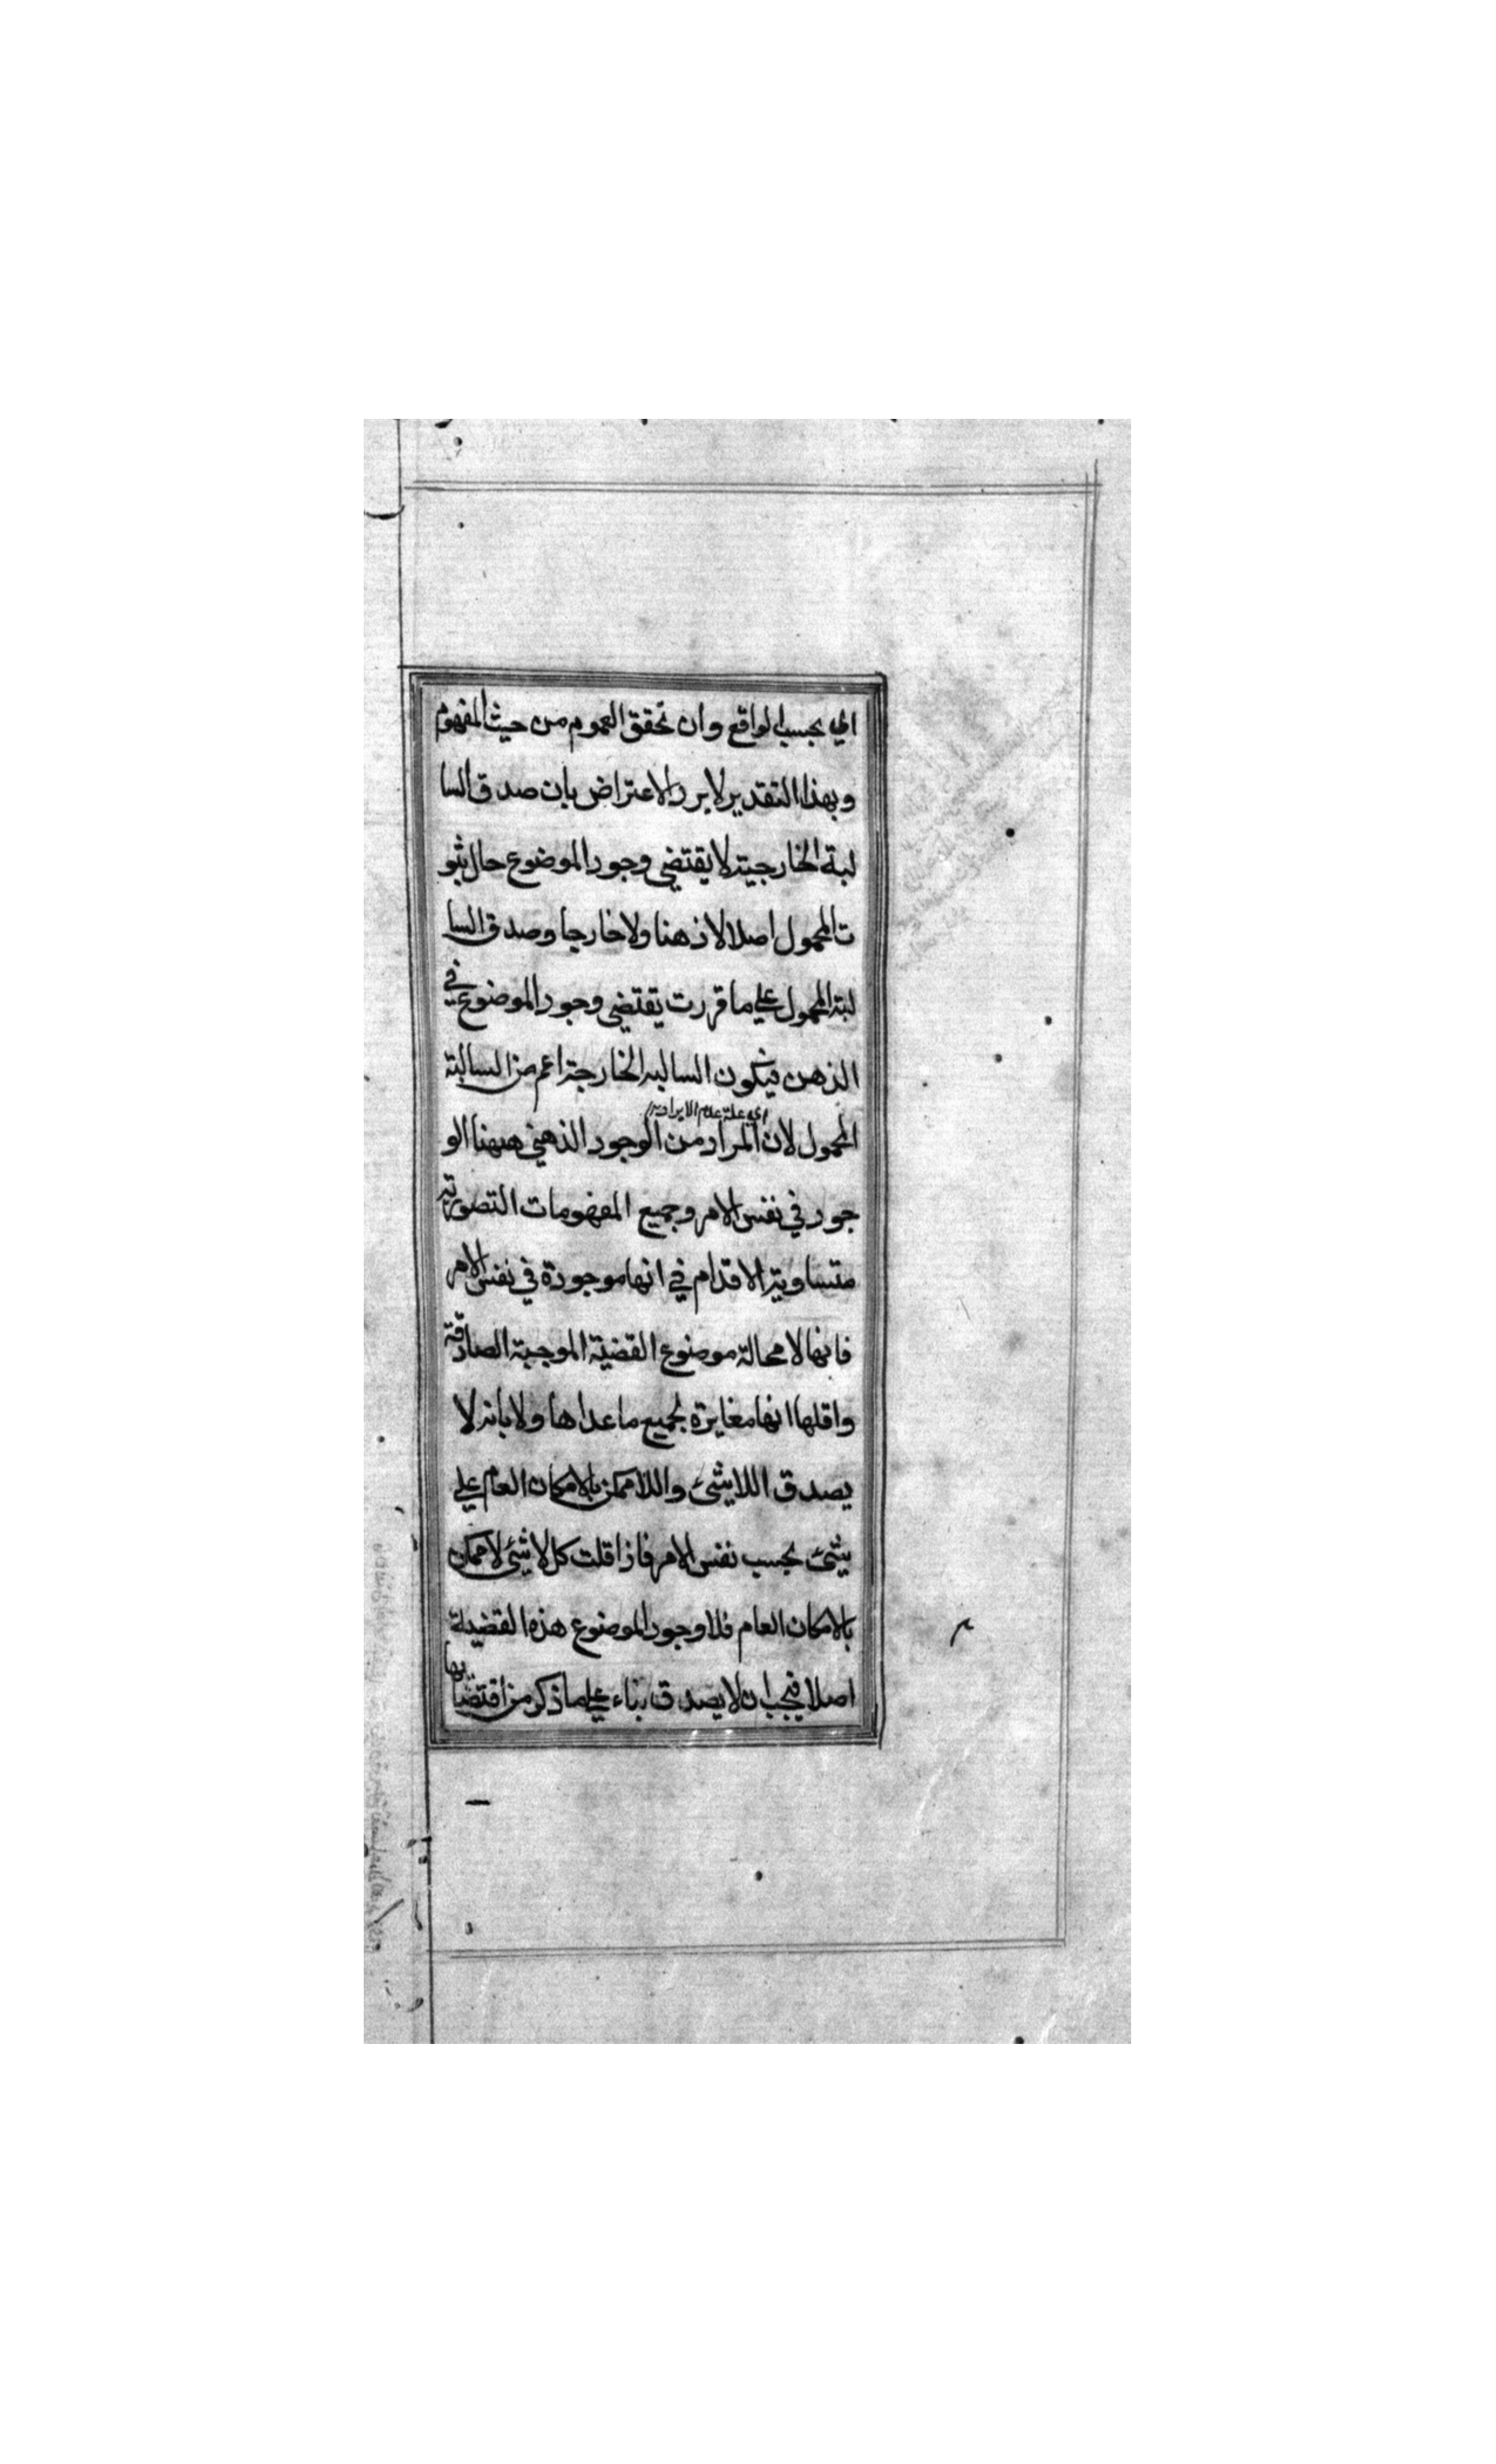 اي بحسب الواقع وان تحقق العموم من حيث المفهوم
وبهذا التقدير لا يرد الاعتراض بان صدق السا
لبة الخارجية لا يقتضي وجود الموضوع حال ثبو
ت المحمول اصلا لا ذهنا ولا خارجا وصدق السا
لبة المحمول علي ما قررت يقتضي وجود الموضوع في
الذهن فيكون السالبه الخارجة اعم من السالبة
اي علة عدم الايراد
المحمول لان المراد من الوجود الذهني ههنا الو
جود في نفس الامر وجميع المفهومات التصورية
متساوية الاقدام في انها موجودة في نفس الامر
فانها لا محالة موضوع القضية الموجبة الصادقة
واقلها انها مغايرة لجميع ما عداها ولا بانه لا
يصدق اللاشئ واللاممكن بالامكان العام علي
شئ بحسب نفس الامر فاذا قلت كل لا شئ لا ممكن
بالامكان العام فلا وجود لموضوع هذه القضية
اصلا فيجب ان لا يصدق بناء علي ما ذكر من اقتضايها